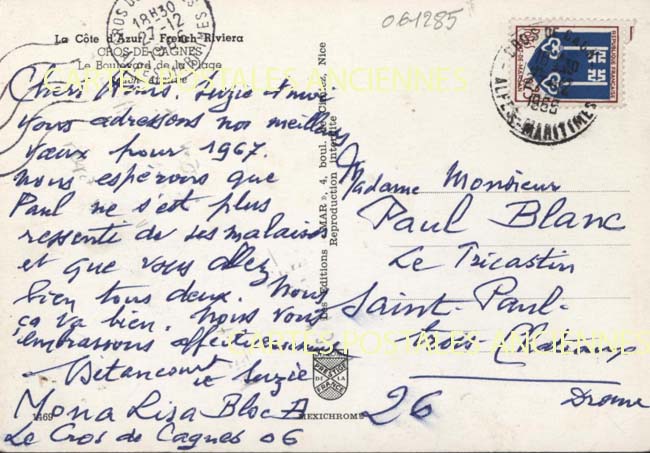 061285
La Côte d'Azur - French Riviera
CROS-DE-CAGNES
Le Boulevard de la Plage
18H30
27-12
CROS DE CAGNES
1966
ALPES-MARITIMES
REPUBLIQUE FRANCAISE
Chers Amis. Suzie et moi
vous adressons nos meilleurs
vœux pour 1967.
nous espérons que
Paul ne s'est plus
ressenti de ses malaises
et que vous allez
bien tous deux. Nous,
ça va bien. Nous vous
embrassons affectueusement
Bétancourt et Suzie
Mona Lisa Bloc A
Le Cros de Cagnes 06
Les Editions "MAR", 4, boul. de Cimiez, Nice
Reproduction interdite
Madame Monsieur
Paul Blanc
Le Tricastin
Saint-Paul-
trois Châteaux
26 Drome
PRESTIGE DE LA FRANCE
MEXICHROME
1469
CARTES POSTALES ANCIENNES
CARTES POSTALES ANCIENNES